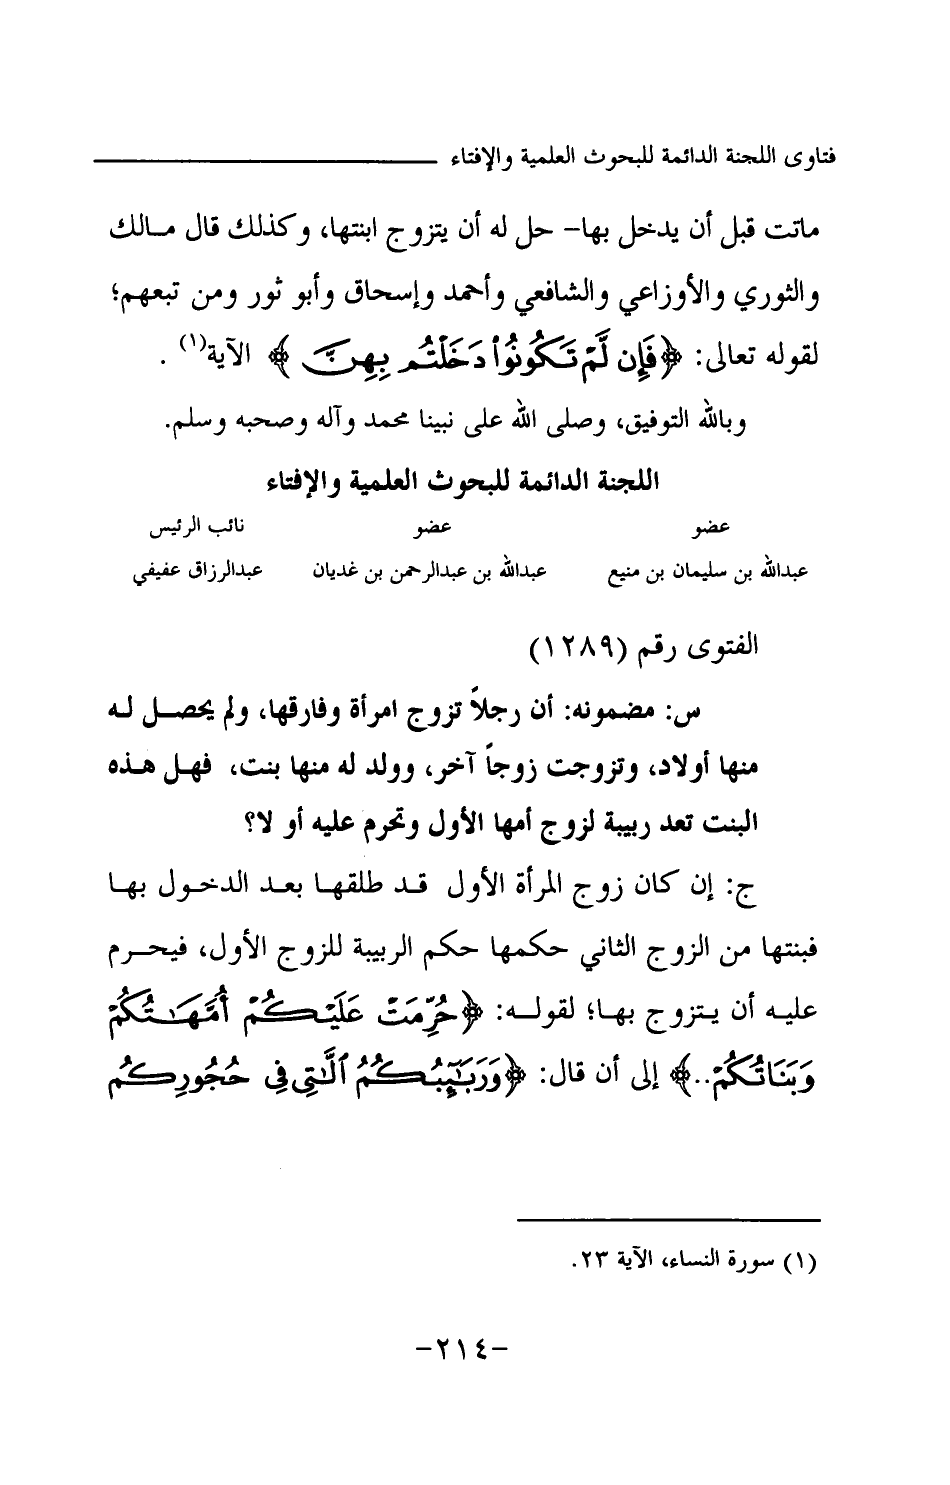 فتاوى اللجنة الدائمة للبحوث العلمية والإفتاء
ماتت قبل أن يدخل بها- حل له أن يتزوج ابنتها، وكذلك قال مالك
والثوري والأوزاعي والشافعي وأحمد وإسحاق وأبو ثور ومن تبعهم؛
لقوله تعالى: ﴿فَإِن لَّمْ تَكُونُوا۟ دَخَلْتُم بِهِنَّ﴾ الآية(١) .
وبالله التوفيق، وصلى الله على نبينا محمد وآله وصحبه وسلم.
اللجنة الدائمة للبحوث العلمية والإفتاء
عضو عضو نائب الرئيس
عبدالله بن سليمان بن منيع عبدالله بن عبدالرحمن بن غديان عبدالرزاق عفيفي
الفتوى رقم (١٢٨٩)
س: مضمونه: أن رجلاً تزوج امرأة وفارقها، ولم يحصل له
منها أولاد، وتزوجت زوجاً آخر، وولد له منها بنت، فهل هذه
البنت تعد ربيبة لزوج أمها الأول وتحرم عليه أو لا؟
ج: إن كان زوج المرأة الأول قد طلقها بعد الدخول بها
فبنتها من الزوج الثاني حكمها حكم الربيبة للزوج الأول، فيحرم
عليه أن يتزوج بها؛ لقوله: ﴿حُرِّمَتْ عَلَيْكُمْ أُمَّهَٰتُكُمْ
وَبَنَاتُكُمْ..﴾ إلى أن قال: ﴿وَرَبَٰٓئِبُكُمُ ٱلَّٰتِى فِى حُجُورِكُم
(١) سورة النساء، الآية ٢٣.
-٢١٤-